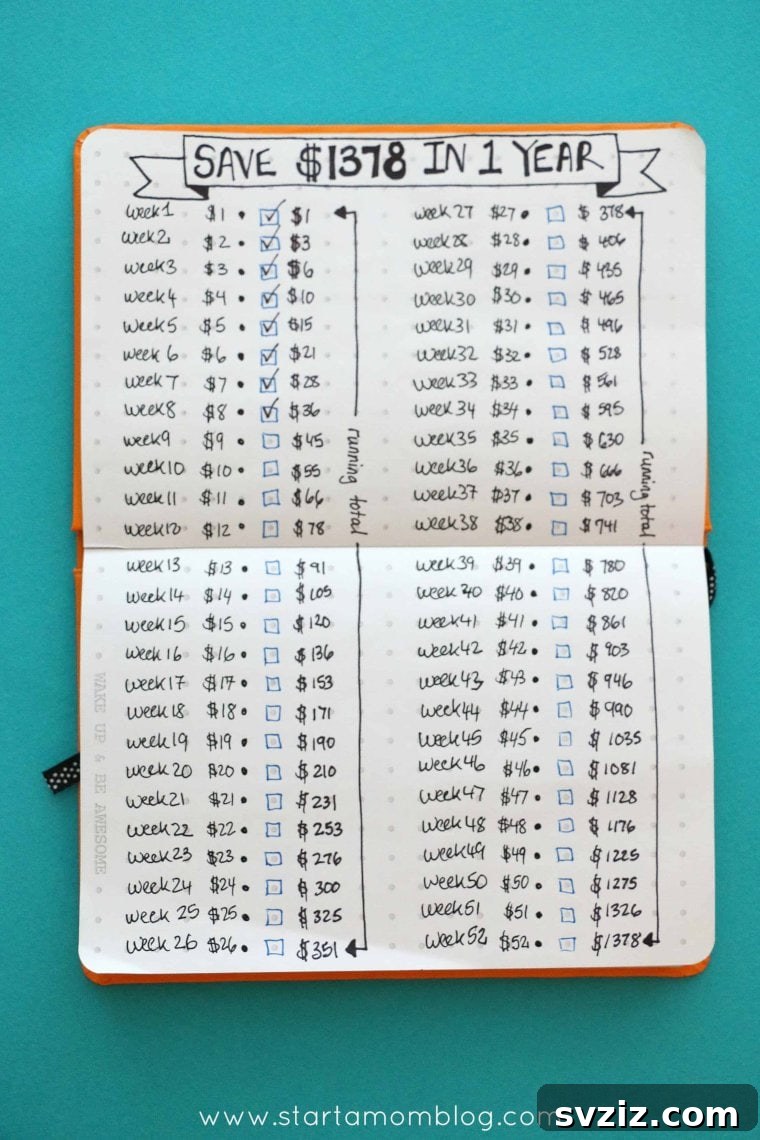 SAVE $1378 IN 1 YEAR
week1 $1 • $1
week2 $2 • $3
week3 $3 • $6
week4 $4 • $10
week5 $5 • $15
week6 $6 • $21
week7 $7 • $28
week8 $8 • $36
week9 $9 • $45
week10 $10 • $55
week11 $11 • $66
week12 $12 • $78
week13 $13 • $91
week14 $14 • $105
week15 $15 • $120
week16 $16 • $136
week17 $17 • $153
week18 $18 • $171
week19 $19 • $190
week20 $20 • $210
week21 $21 • $231
week22 $22 • $253
week23 $23 • $276
week24 $24 • $300
week 25 $25 • $325
week 26 $26 • $351
running total
week 27 $27 • $378
week 28 $28 • $406
week29 $29 • $435
week30 $30 • $465
week31 $31 • $496
week32 $32 • $528
week33 $33 • $561
week34 $34 • $595
week35 $35 • $630
week36 $36 • $666
week37 $37 • $703
week38 $38 • $741
week39 $39 • $780
week40 $40 • $820
week41 $41 • $861
week42 $42 • $903
week43 $43 • $946
week44 $44 • $990
week45 $45 • $1035
week46 $46 • $1081
week47 $47 • $1128
week48 $48 • $1176
week49 $49 • $1225
week50 $50 • $1275
week51 $51 • $1326
week52 $52 • $1378
running total
WAKE UP & BE AWESOME
www.startamomblog.com
svziz.com